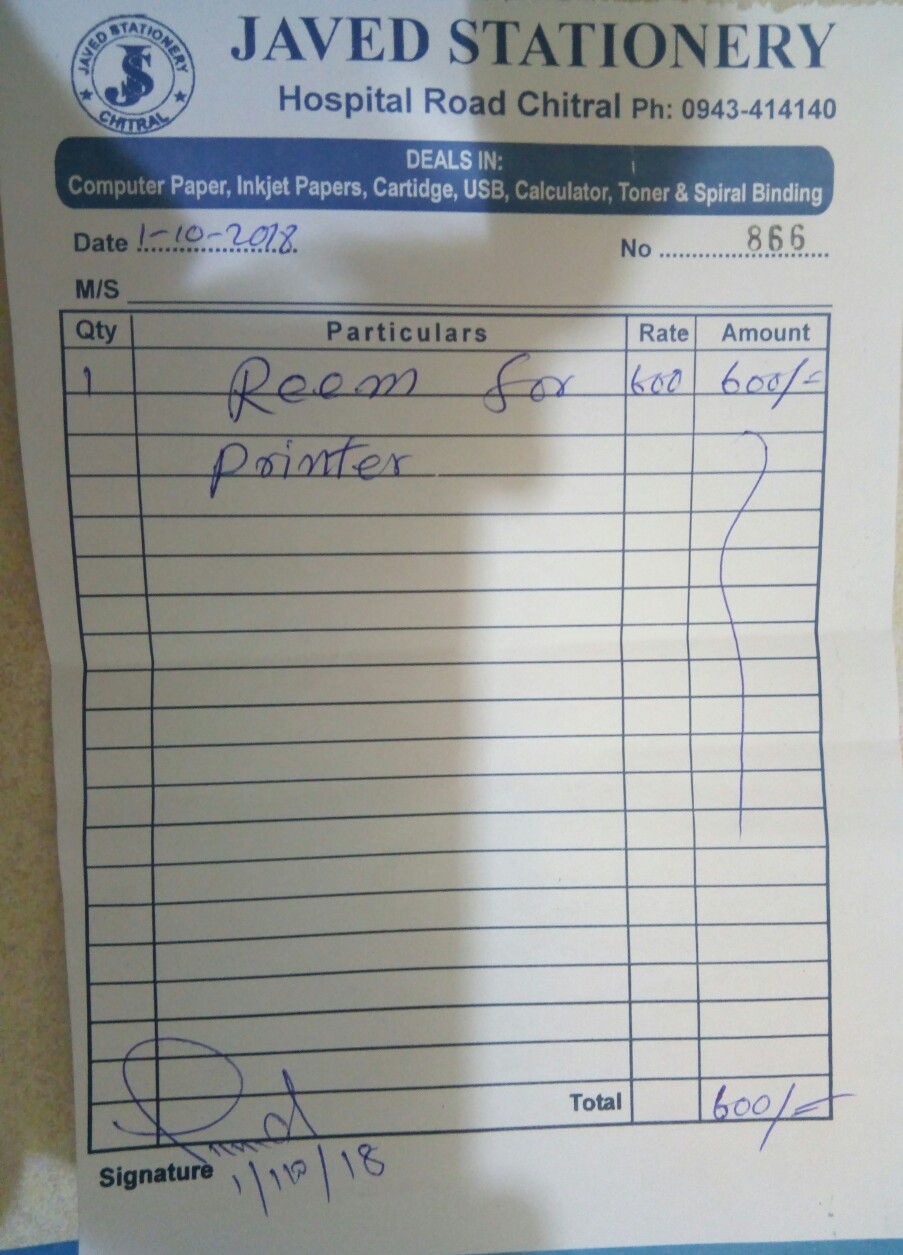 JAVED STATIONERY
CHITRAL
JS
JAVED STATIONERY
Hospital Road Chitral Ph: 0943-414140
DEALS IN:
Computer Paper, Inkjet Papers, Cartidge, USB, Calculator, Toner & Spiral Binding
Date 1-10-2018 No 866
M/S
Qty Particulars Rate Amount
1 Reem for 600 600/=
printer
Total 600/=
Signature 1/10/18